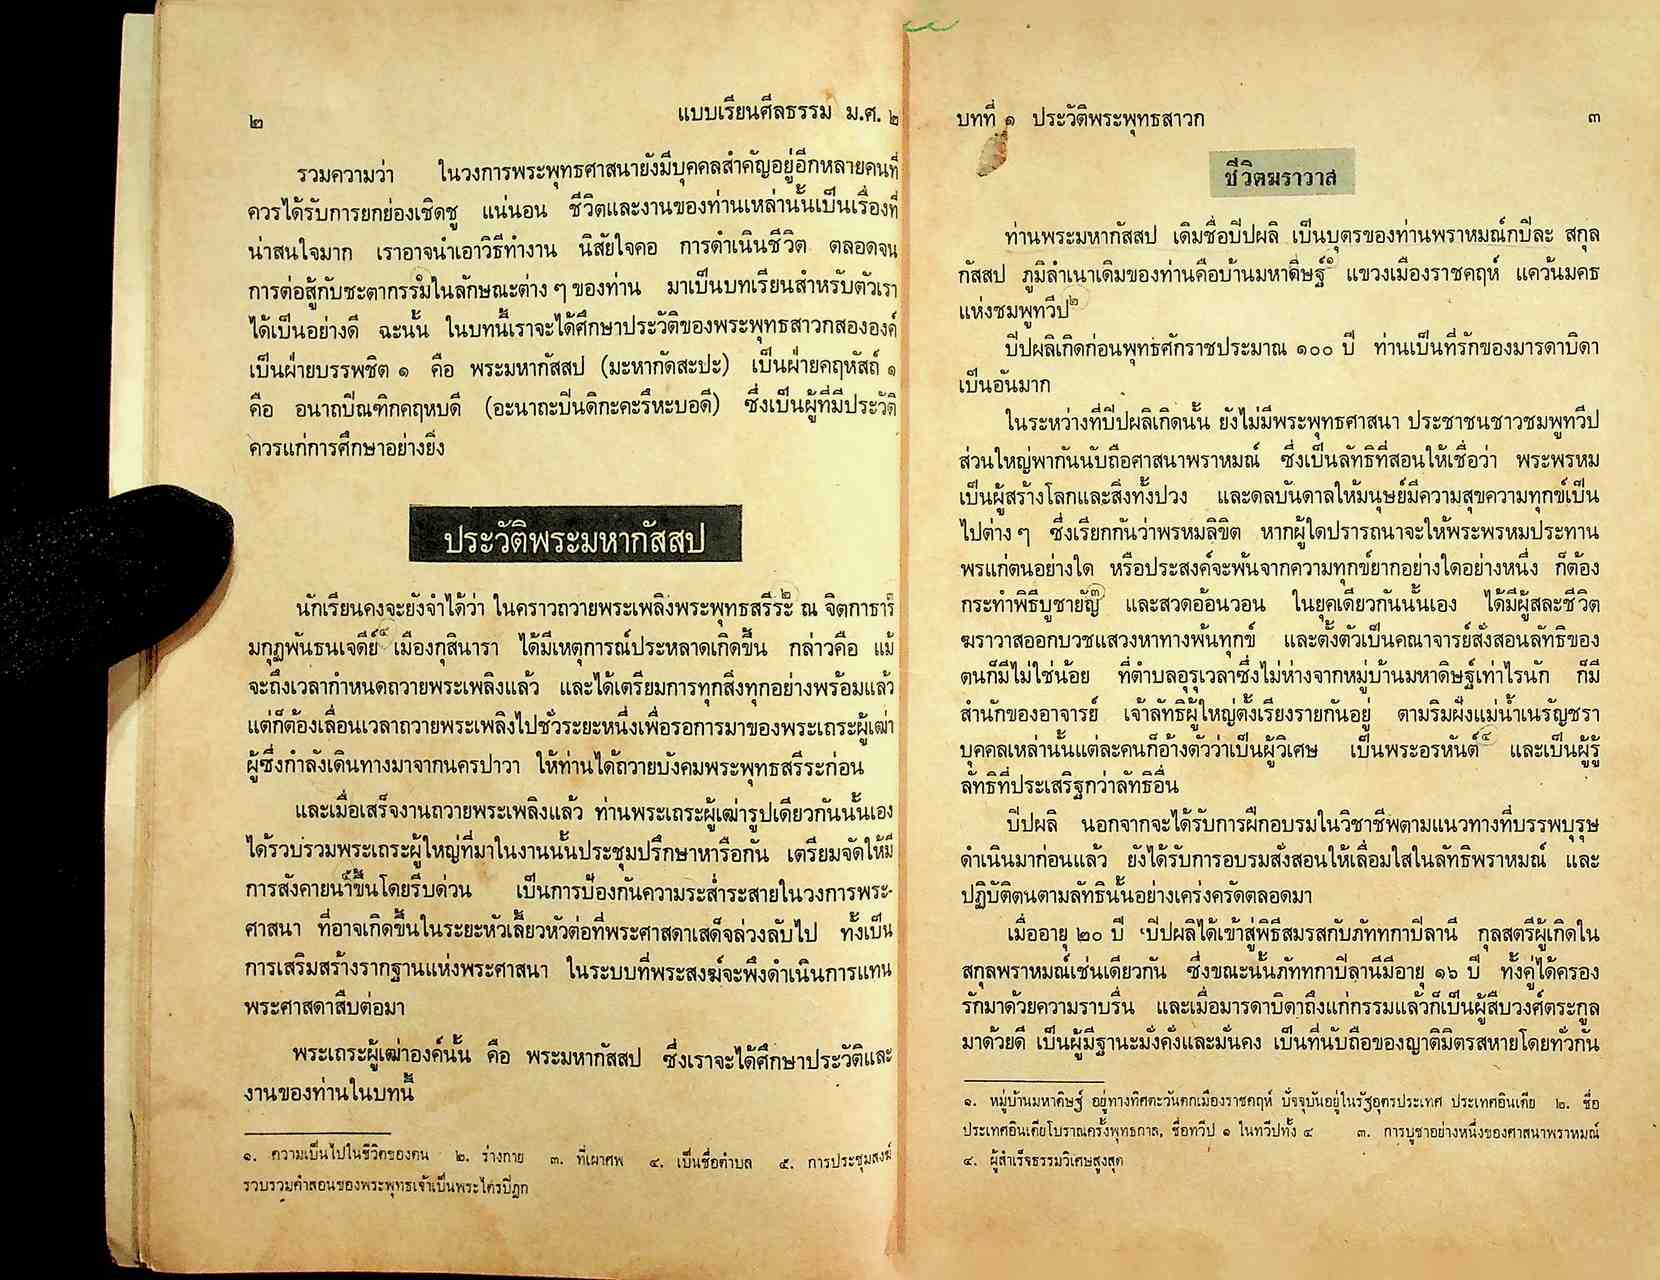 ๒
แบบเรียนศีลธรรม ม.ศ. ๒
รวมความว่า ในวงการพระพุทธศาสนายังมีบุคคลสำคัญอยู่อีกหลายคนที่
ควรได้รับการยกย่องเชิดชู แน่นอน ชีวิตและงานของท่านเหล่านั้นเป็นเรื่องที่
น่าสนใจมาก เราอาจนำเอาวิธีทำงาน นิสัยใจคอ การดำเนินชีวิต ตลอดจน
การต่อสู้กับชะตากรรม๑ในลักษณะต่าง ๆ ของท่าน มาเป็นบทเรียนสำหรับตัวเรา
ได้เป็นอย่างดี ฉะนั้น ในบทนี้เราจะได้ศึกษาประวัติของพระพุทธสาวกสององค์
เป็นฝ่ายบรรพชิต ๑ คือ พระมหากัสสป (มะหากัดสะปะ) เป็นฝ่ายคฤหัสถ์ ๑
คือ อนาถบิณฑิกคฤหบดี (อะนาถะบินดิกะคะรึหะบอดี) ซึ่งเป็นผู้ที่มีประวัติ
ควรแก่การศึกษาอย่างยิ่ง
ประวัติพระมหากัสสป
นักเรียนคงจะยังจำได้ว่า ในคราวถวายพระเพลิงพระพุทธสรีระ๒ ณ จิตกาธาร๓
มกุฏพันธนเจดีย์๔ เมืองกุสินารา ได้มีเหตุการณ์ประหลาดเกิดขึ้น กล่าวคือ แม้
จะถึงเวลากำหนดถวายพระเพลิงแล้ว และได้เตรียมการทุกสิ่งทุกอย่างพร้อมแล้ว
แต่ก็ต้องเลื่อนเวลาถวายพระเพลิงไปชั่วระยะหนึ่งเพื่อรอการมาของพระเถระผู้เฒ่า
ผู้ซึ่งกำลังเดินทางมาจากนครปาวา ให้ท่านได้ถวายบังคมพระพุทธสรีระก่อน
และเมื่อเสร็จงานถวายพระเพลิงแล้ว ท่านพระเถระผู้เฒ่ารูปเดียวกันนั้นเอง
ได้รวบรวมพระเถระผู้ใหญ่ที่มาในงานนั้นประชุมปรึกษาหารือกัน เตรียมจัดให้มี
การสังคายนา๕ขึ้นโดยรีบด่วน เป็นการป้องกันความระส่ำระสายในวงการพระ-
ศาสนา ที่อาจเกิดขึ้นในระยะหัวเลี้ยวหัวต่อที่พระศาสดาเสด็จล่วงลับไป ทั้งเป็น
การเสริมสร้างรากฐานแห่งพระศาสนา ในระบบที่พระสงฆ์จะพึงดำเนินการแทน
พระศาสดาสืบต่อมา
พระเถระผู้เฒ่าองค์นั้น คือ พระมหากัสสป ซึ่งเราจะได้ศึกษาประวัติและ
งานของท่านในบทนี้
๑. ความเป็นไปในชีวิตของคน ๒. ร่างกาย ๓. ที่เผาศพ ๔. เป็นชื่อตำบล ๕. การประชุมสงฆ์
รวบรวมคำสอนของพระพุทธเจ้าเป็นพระไตรปิฎก
บทที่ ๑ ประวัติพระพุทธสาวก
๓
ชีวิตฆราวาส
ท่านพระมหากัสสป เดิมชื่อปิปผลิ เป็นบุตรของท่านพราหมณ์กปิละ สกุล
กัสสป ภูมิลำเนาเดิมของท่านคือบ้านมหาดิษฐ์๑ แขวงเมืองราชคฤห์ แคว้นมคธ
แห่งชมพูทวีป๒
ปิปผลิเกิดก่อนพุทธศักราชประมาณ ๑๐๐ ปี ท่านเป็นที่รักของมารดาบิดา
เป็นอันมาก
ในระหว่างที่ปิปผลิเกิดนั้น ยังไม่มีพระพุทธศาสนา ประชาชนชาวชมพูทวีป
ส่วนใหญ่พากันนับถือศาสนาพราหมณ์ ซึ่งเป็นลัทธิที่สอนให้เชื่อว่า พระพรหม
เป็นผู้สร้างโลกและสิ่งทั้งปวง และดลบันดาลให้มนุษย์มีความสุขความทุกข์เป็น
ไปต่าง ๆ ซึ่งเรียกกันว่าพรหมลิขิต หากผู้ใดปรารถนาจะให้พระพรหมประทาน
พรแก่ตนอย่างใด หรือประสงค์จะพ้นจากความทุกข์ยากอย่างใดอย่างหนึ่ง ก็ต้อง
กระทำพิธีบูชายัญ๓ และสวดอ้อนวอน ในยุคเดียวกันนั้นเอง ได้มีผู้สละชีวิต
ฆราวาสออกบวชแสวงหาทางพ้นทุกข์ และตั้งตัวเป็นคณาจารย์สั่งสอนลัทธิของ
ตนก็มีไม่ใช่น้อย ที่ตำบลอุรุเวลาซึ่งไม่ห่างจากหมู่บ้านมหาดิษฐ์เท่าไรนัก ก็มี
สำนักของอาจารย์ เจ้าลัทธิผู้ใหญ่ตั้งเรียงรายกันอยู่ ตามริมฝั่งแม่น้ำเนรัญชรา
บุคคลเหล่านั้นแต่ละคนก็อ้างตัวว่าเป็นผู้วิเศษ เป็นพระอรหันต์๔ และเป็นผู้รู้
ลัทธิที่ประเสริฐกว่าลัทธิอื่น
ปิปผลิ นอกจากจะได้รับการฝึกอบรมในวิชาชีพตามแนวทางที่บรรพบุรุษ
ดำเนินมาก่อนแล้ว ยังได้รับการอบรมสั่งสอนให้เลื่อมใสในลัทธิพราหมณ์ และ
ปฏิบัติตนตามลัทธินั้นอย่างเคร่งครัดตลอดมา
เมื่ออายุ ๒๐ ปี ปิปผลิได้เข้าสู่พิธีสมรสกับภัททกาปิลานี กุลสตรีผู้เกิดใน
สกุลพราหมณ์เช่นเดียวกัน ซึ่งขณะนั้นภัททกาปิลานีมีอายุ ๑๖ ปี ทั้งคู่ได้ครอง
รักมาด้วยความราบรื่น และเมื่อมารดาบิดาถึงแก่กรรมแล้วก็เป็นผู้สืบวงศ์ตระกูล
มาด้วยดี เป็นผู้มีฐานะมั่งคั่งและมั่นคง เป็นที่นับถือของญาติมิตรสหายโดยทั่วกัน
๑. หมู่บ้านมหาดิษฐ์ อยู่ทางทิศตะวันตกเมืองราชคฤห์ ปัจจุบันอยู่ในรัฐอุตรประเทศ ประเทศอินเดีย ๒. ชื่อ
ประเทศอินเดียโบราณครั้งพุทธกาล, ชื่อทวีป ๑ ในทวีปทั้ง ๔ ๓. การบูชาอย่างหนึ่งของศาสนาพราหมณ์
๔. ผู้สำเร็จธรรมวิเศษสูงสุด